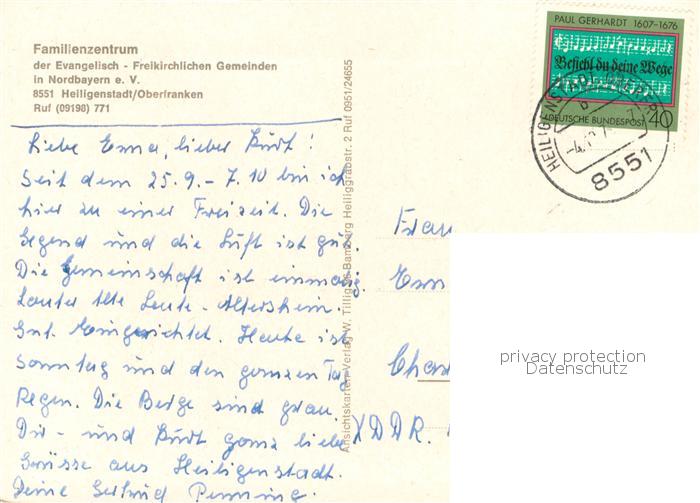 Familienzentrum
der Evangelisch - Freikirchlichen Gemeinden
in Nordbayern e. V.
8551 Heiligenstadt/Oberfranken
Ruf (09198) 771
Liebe Erna, lieber Kurt!
Seit dem 25.9. - 7.10 bin ich
hier zu einer Freizeit. Die
Gegend und die Luft ist gut.
Die Gemeinschaft ist einmalig.
Lauter Alte Leute - Altersheim.
Gut Eingerichtet. Heute ist
Sonntag und den ganzen Tag
Regen. Die Berge sind grau.
Dir - und Kurt ganz liebe
Grüsse aus Heiligenstadt.
Deine Gertrud
Ansichtskarten-Verlag W. Tillig 86 Bamberg Heiliggrabstr. 2 Ruf 0951/24655
PAUL GERHARDT 1607-1676
Befiehl du deine Wege
DEUTSCHE BUNDESPOST 40
HEILIGENSTADT
b
8551
Frau
X DDR.
privacy protection
Datenschutz